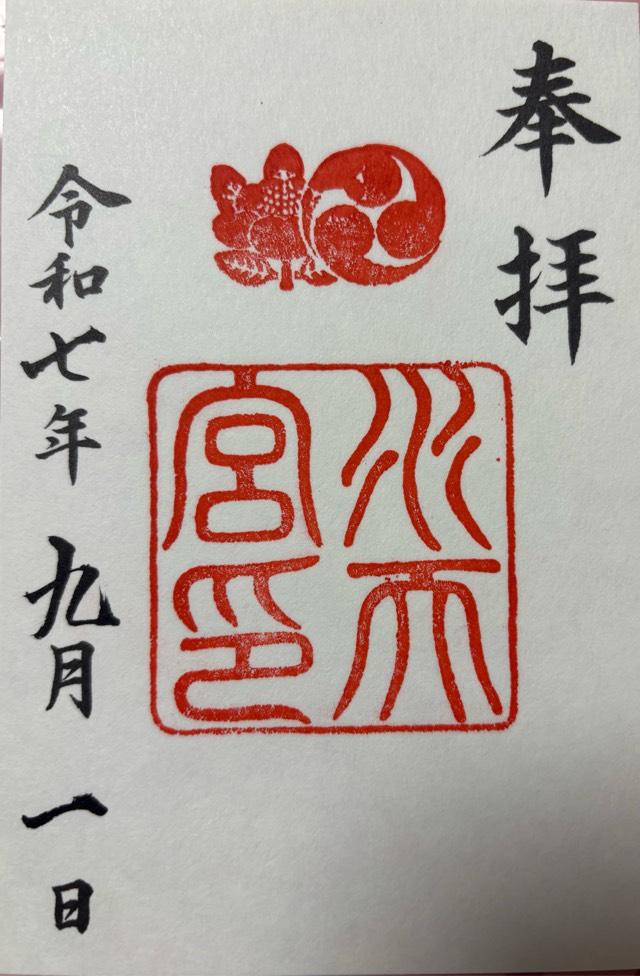 奉拝
水天
宮印
令和七年九月一日